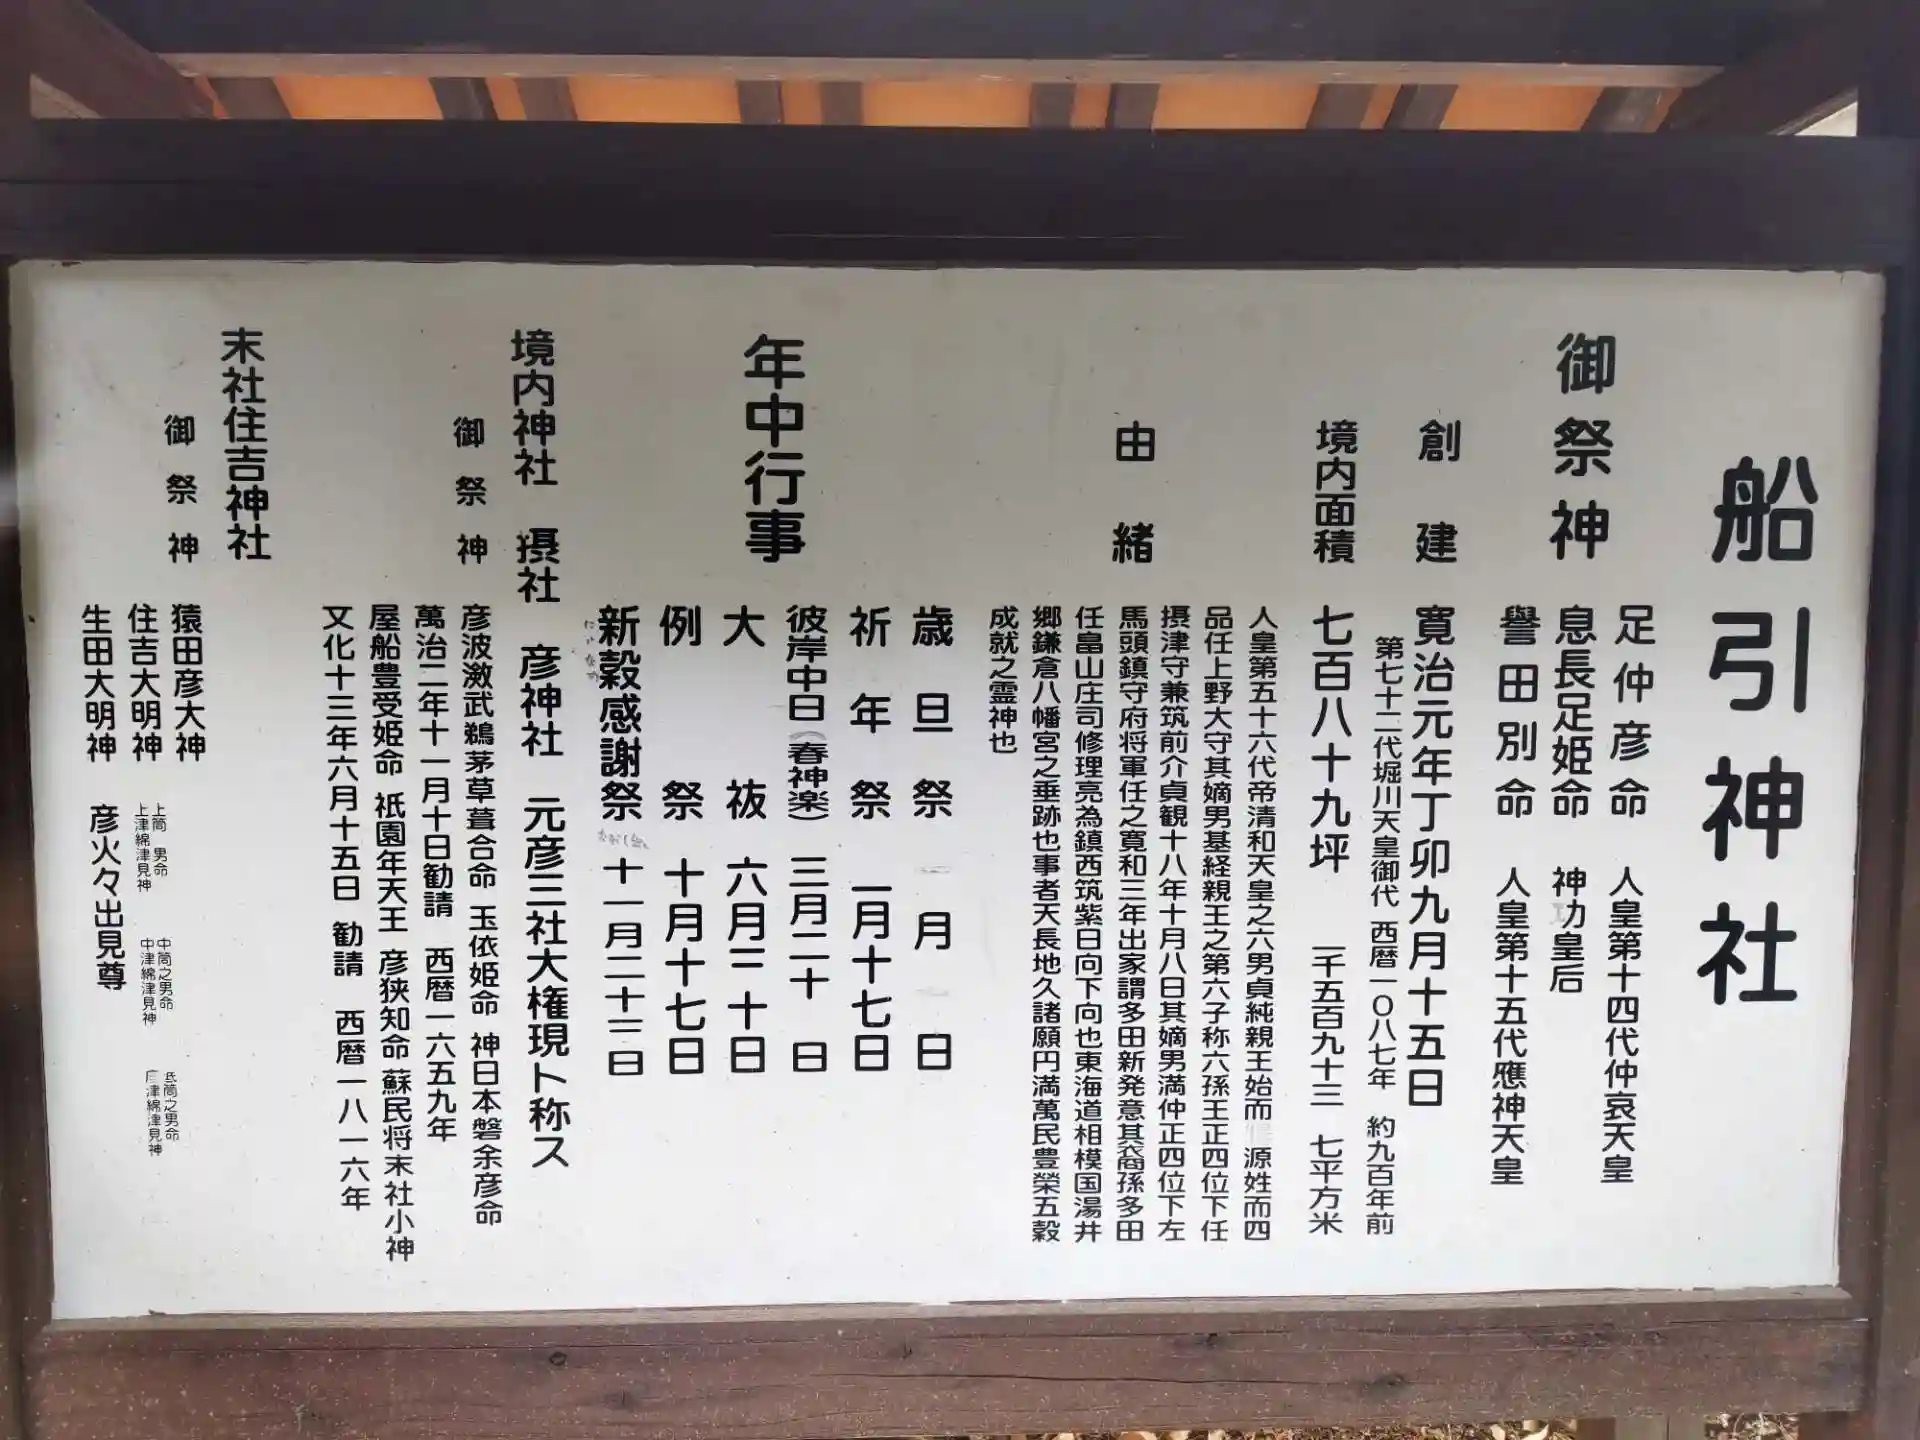 船引神社
御祭神
足仲彦命 人皇第十四代仲哀天皇
息長足姫命 神功皇后
譽田別命 人皇第十五代應神天皇
創建 寛治元年丁卯九月十五日
第七十二代堀川天皇御代 西暦一〇八七年 約九百年前
境内面積 七百八十九坪 一千五百九十三 七平方米
由緒
人皇第五十六代帝清和天皇之六男貞純親王始而 源姓而四
品任上野大守其嫡男基経親王之第六子称六孫王正四位下任
摂津守兼筑前介貞観十八年十月八日其嫡男満仲正四位下左
馬頭鎮守府将軍任之寛和三年出家謂多田新発意其裔孫多田
任畠山庄司修理亮為鎮西筑紫日向下向也東海道相模国湯井
郷鎌倉八幡宮之垂跡也事者天長地久諸願円満萬民豊榮五穀
成就之霊神也
年中行事
歳旦祭 一月一日
祈年祭 二月十七日
彼岸中日(春神楽) 三月二十 日
大祓 六月三十日
例祭 十月十七日
新穀感謝祭 十一月二十三日
境内神社 摂社 彦神社 元彦三社大権現ト称ス
御祭神 彦波激武鵜茅草葺合命 玉依姫命 神日本磐余彦命
萬治二年十一月十日勧請 西暦一六五九年
屋船豊受姫命 祇園年天王 彦狭知命 蘇民将末社小神
文化十三年六月十五日 勧請 西暦一八一六年
末社住吉神社
御祭神 猿田彦大神
住吉大明神
上筒 男命 中筒之男命 底筒之男命
上津綿津見神 中津綿津見神 津綿津見神
生田大明神 彦火々出見尊